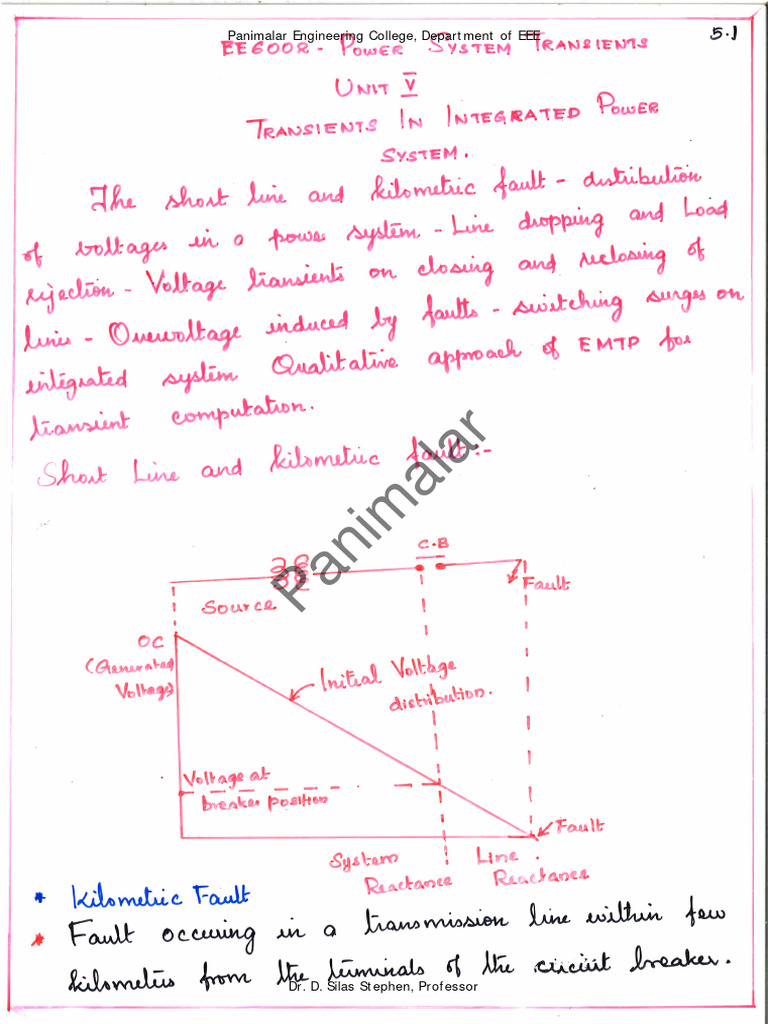 Panimalar Engineering College, Department of EEE
EE6002 - POWER SYSTEM TRANSIENTS
5.1
UNIT V
TRANSIENTS IN INTEGRATED POWER
SYSTEM.
The short line and kilometric fault - distribution
of voltages in a power system - Line dropping and Load
rejection - Voltage transients on closing and reclosing of
lines - Overvoltage induced by faults - switching surges on
integrated system Qualitative approach of EMTP for
transient computation.
Short Line and kilometric fault:-
Panimalar
C.B
Source
Fault
OC
(Generated
Voltage)
Initial Voltage
distribution.
Voltage at
breaker position
Fault
System
Reactance
Line
Reactance
* Kilometric Fault
* Fault occuring in a transmission line within few
kilometers from the terminals of the circuit breaker.
Dr. D. Silas Stephen, Professor